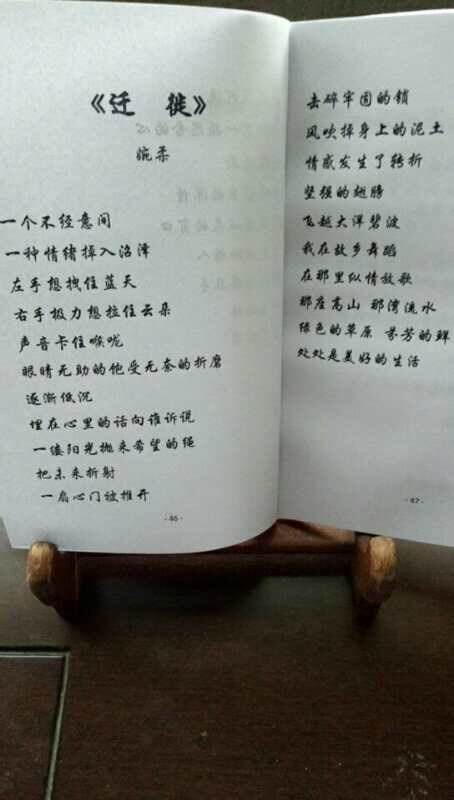 《迁 徙》
婉柔
一个不经意间
一种情绪掉入沼泽
左手想拽住蓝天
右手极力想拉住云朵
声音卡住喉咙
眼睛无助的他受无奈的折磨
逐渐低沉
埋在心里的话向谁诉说
一缕阳光抛来希望的绳
把未来折射
一扇心门被推开
- 46 -
击碎牢固的锁
风吹掉身上的泥土
情感发生了转折
坚强的翅膀
飞越大洋碧波
我在故乡舞蹈
在那里纵情放歌
那座高山 那湾流水
绿色的草原 芬芳的鲜
处处是美好的生活
- 47 -